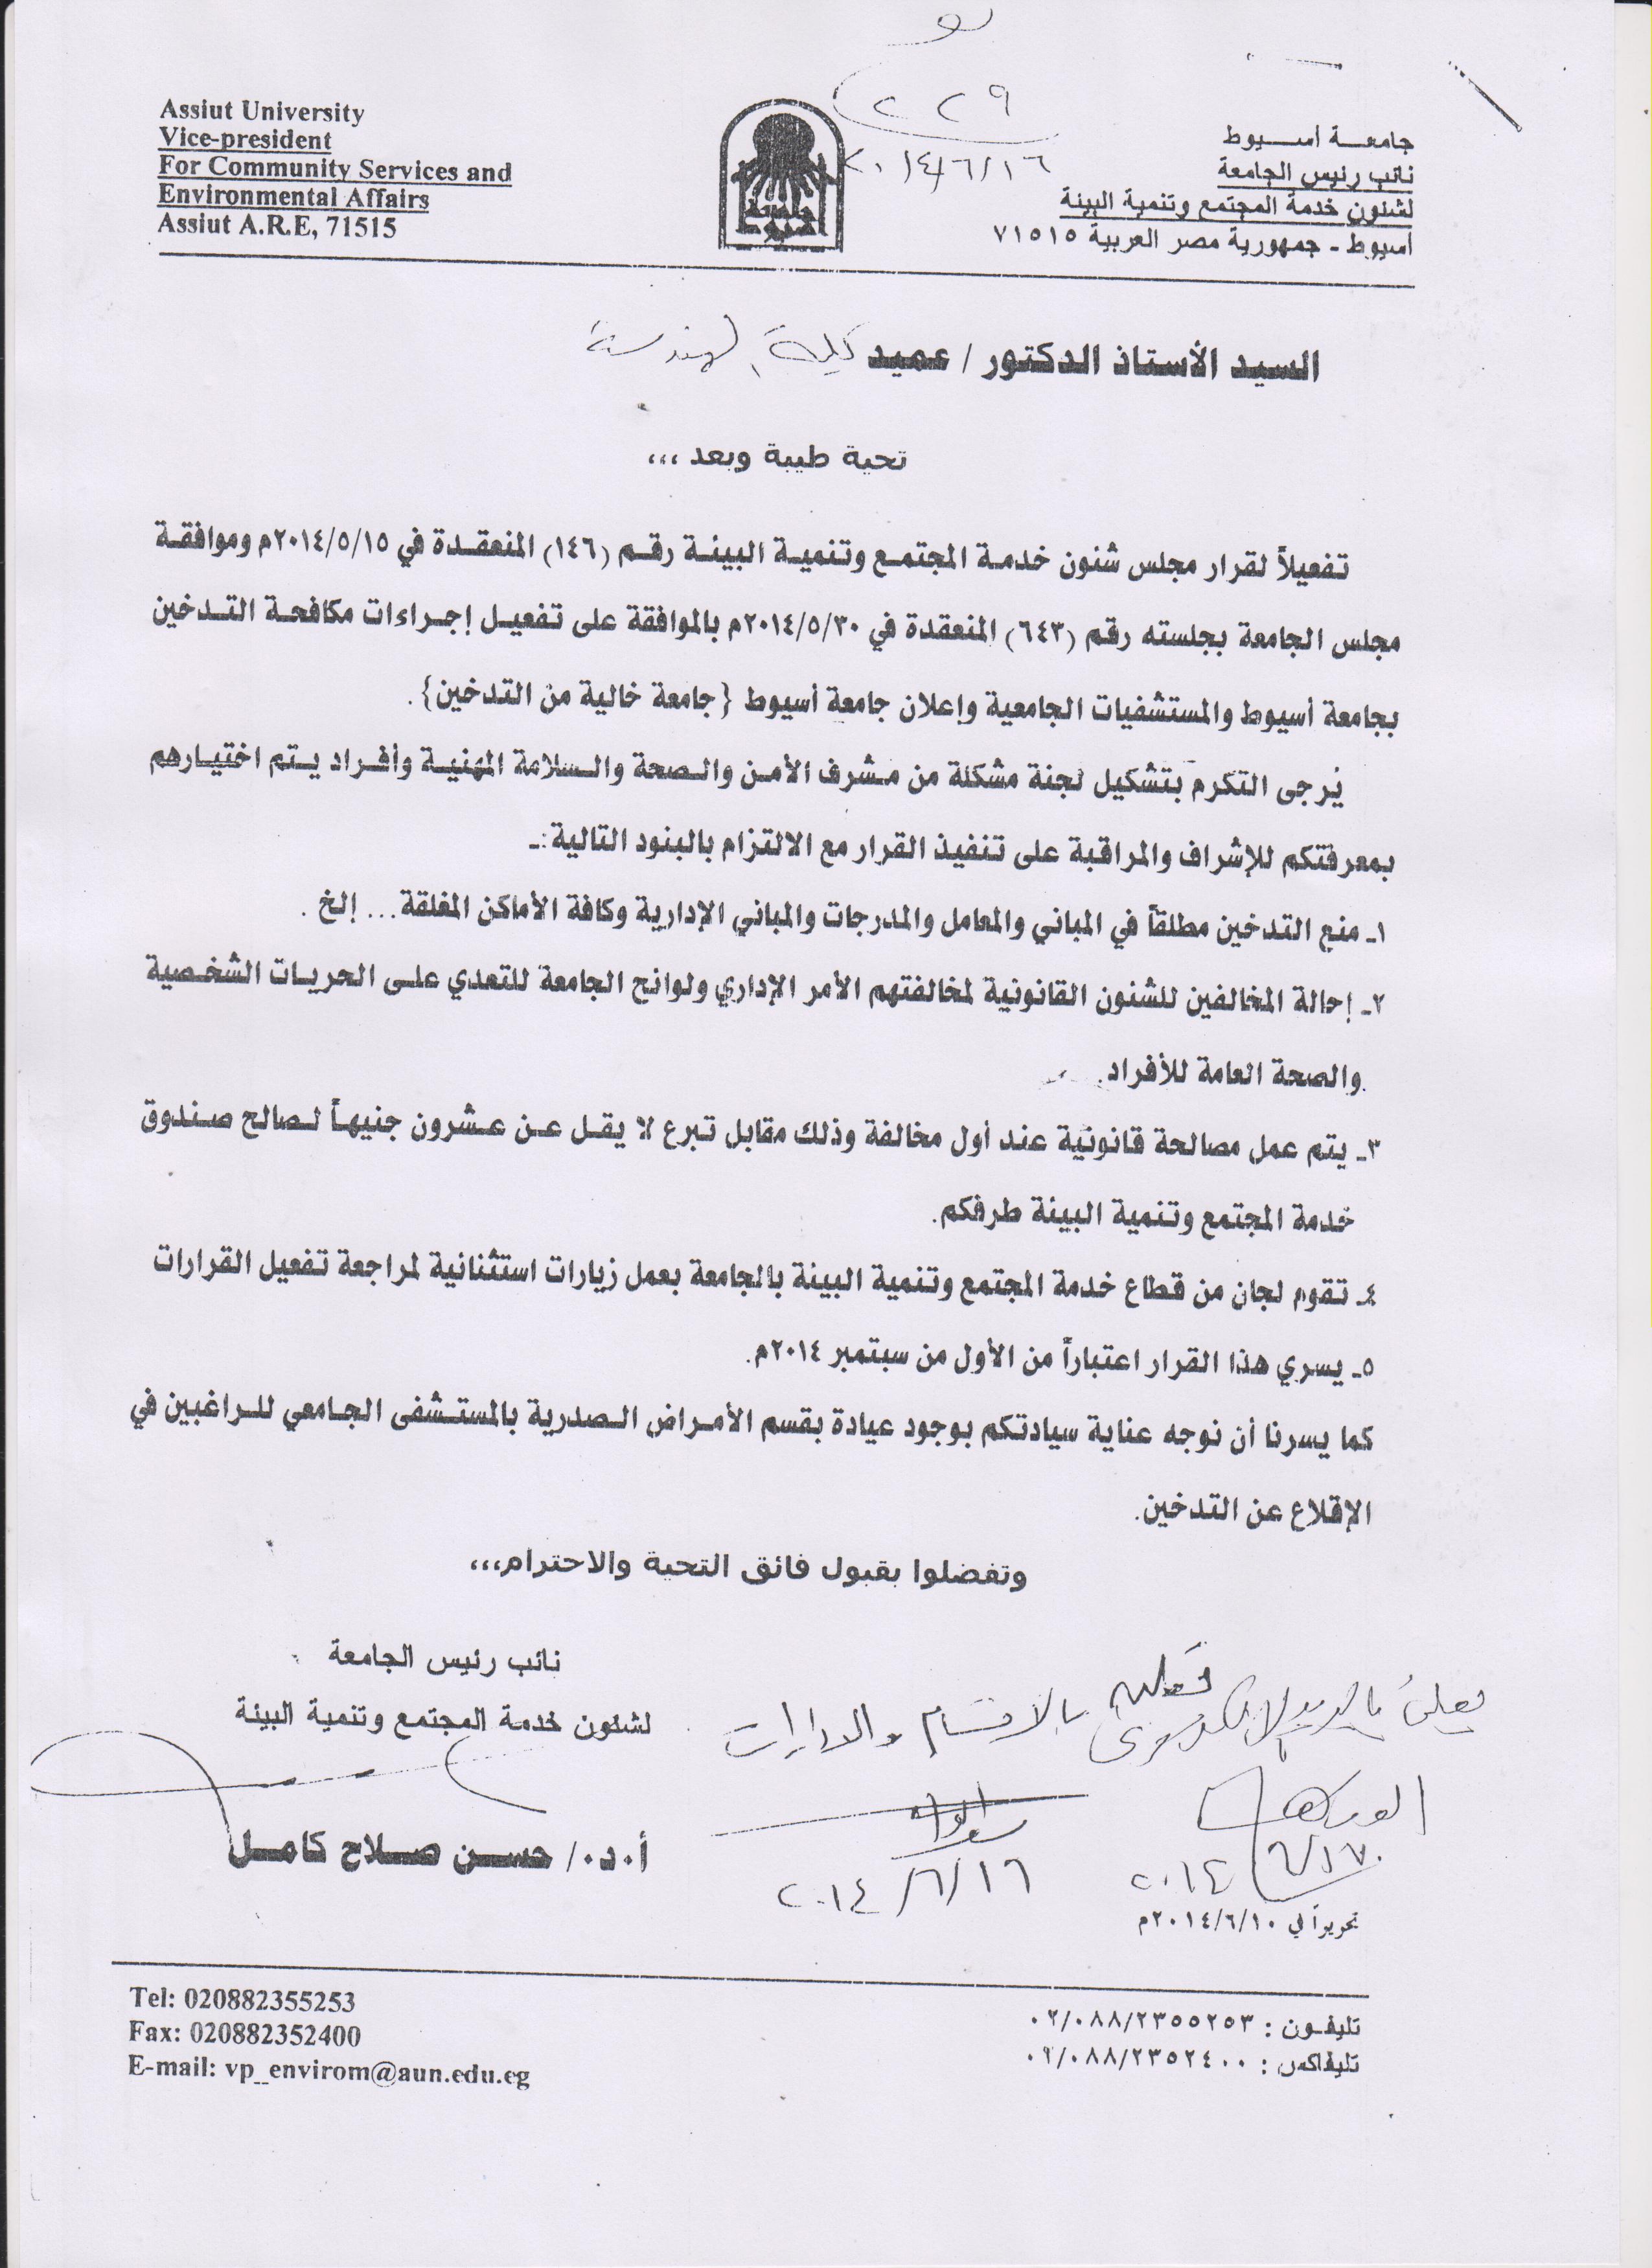 ٢٢٩
٢٠١٤/٦/١٦
Assiut University
Vice-president
For Community Services and
Environmental Affairs
Assiut A.R.E, 71515
جامعة أسيوط
جامعـــة أســـيوط
نائب رئيس الجامعة
لشئون خدمة المجتمع وتنمية البيئة
أسيوط - جمهورية مصر العربية ٧١٥١٥
السيد الأستاذ الدكتور / عميد كلية الهندسة
تحية طيبة وبعد ،،،
تفعيلاً لقرار مجلس شئون خدمة المجتمع وتنمية البيئة رقم (١٤٦) المنعقدة في ٢٠١٤/٥/١٥م وموافقة
مجلس الجامعة بجلسته رقم (٦٤٣) المنعقدة في ٢٠١٤/٥/٣٠م بالموافقة على تفعيل إجراءات مكافحة التدخين
بجامعة أسيوط والمستشفيات الجامعية وإعلان جامعة أسيوط {جامعة خالية من التدخين}.
يُرجى التكرم بتشكيل لجنة مشكلة من مشرف الأمن والصحة والسلامة المهنية وأفراد يتم اختيارهم
بمعرفتكم للإشراف والمراقبة على تنفيذ القرار مع الالتزام بالبنود التالية:-
١- منع التدخين مطلقاً في المباني والمعامل والمدرجات والمباني الإدارية وكافة الأماكن المغلقة... إلخ .
٢- إحالة المخالفين للشئون القانونية لمخالفتهم الأمر الإداري ولوائح الجامعة للتعدي على الحريات الشخصية
والصحة العامة للأفراد.
٣- يتم عمل مصالحة قانونية عند أول مخالفة وذلك مقابل تبرع لا يقل عن عشرون جنيهاً لصالح صندوق
خدمة المجتمع وتنمية البيئة طرفكم.
٤- تقوم لجان من قطاع خدمة المجتمع وتنمية البيئة بالجامعة بعمل زيارات استثنائية لمراجعة تفعيل القرارات
٥- يسري هذا القرار اعتباراً من الأول من سبتمبر ٢٠١٤م.
كما يسرنا أن نوجه عناية سيادتكم بوجود عيادة بقسم الأمراض الصدرية بالمستشفى الجامعي للراغبين في
الإقلاع عن التدخين.
وتفضلوا بقبول فائق التحية والاحترام،،،
نائب رئيس الجامعة
لشئون خدمة المجتمع وتنمية البيئة
أ.د./ حســن صــلاح كامــل
بالاقسام والادارات
٢٠١٤/٦/١٦
٢٠١٤ ٦/١٧
تحريراً في ٢٠١٤/٦/١٠م
Tel: 020882355253
Fax: 020882352400
E-mail: vp_envirom@aun.edu.eg
تليفـون : ٠٢/٠٨٨/٢٣٥٥٢٥٣
تليفاكس : ٠٢/٠٨٨/٢٣٥٢٤٠٠